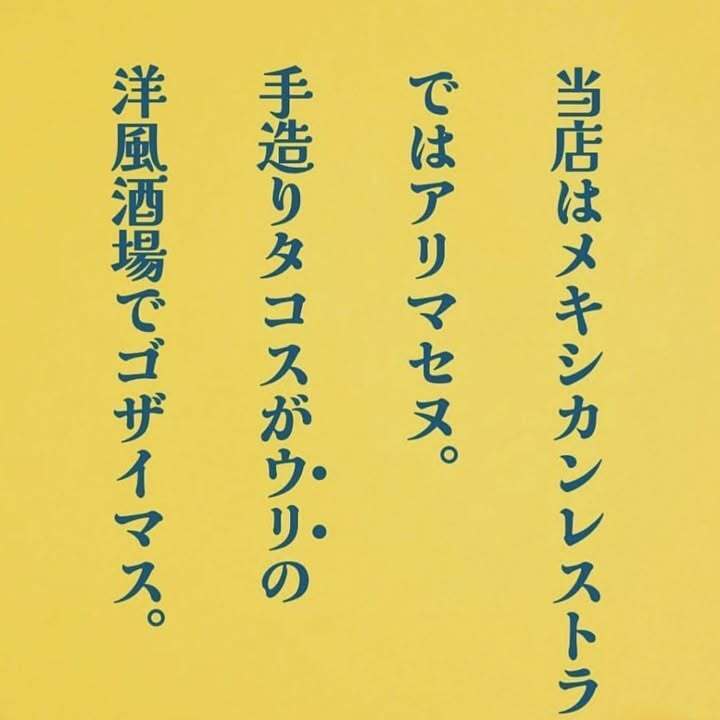 当店はメキシカンレストラ
ではアリマセヌ。
手造りタコスがウリの
洋風酒場でゴザイマス。